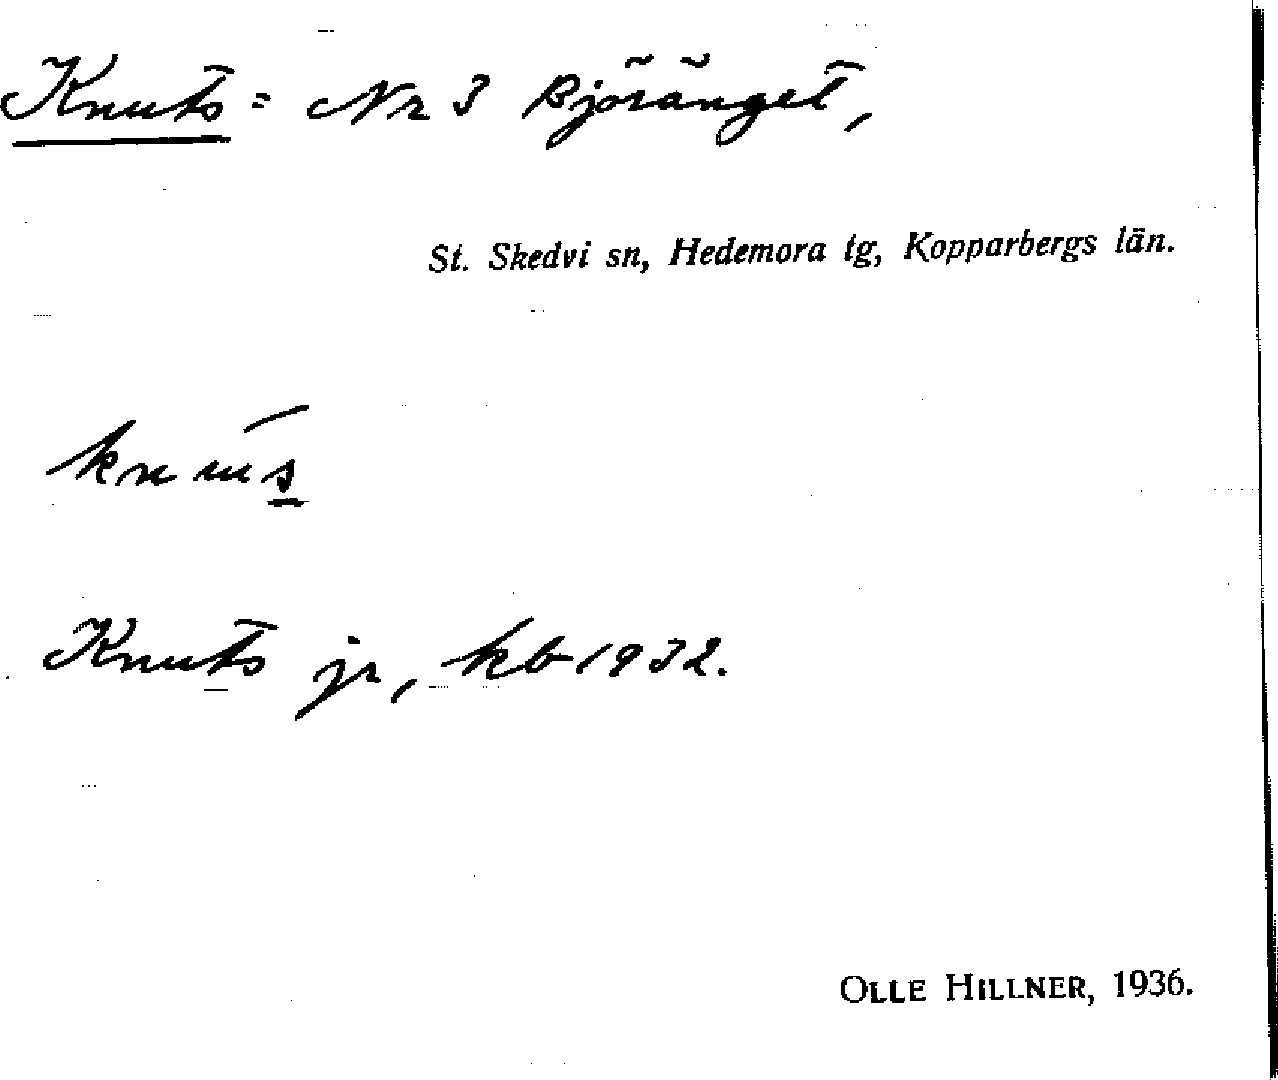 Knuts = Nr 3 Björänget,
St. Skedvi sn, Hedemora tg, Kopparbergs län.
Knuts jr, kb 1932.
OLLE HILLNER, 1936.